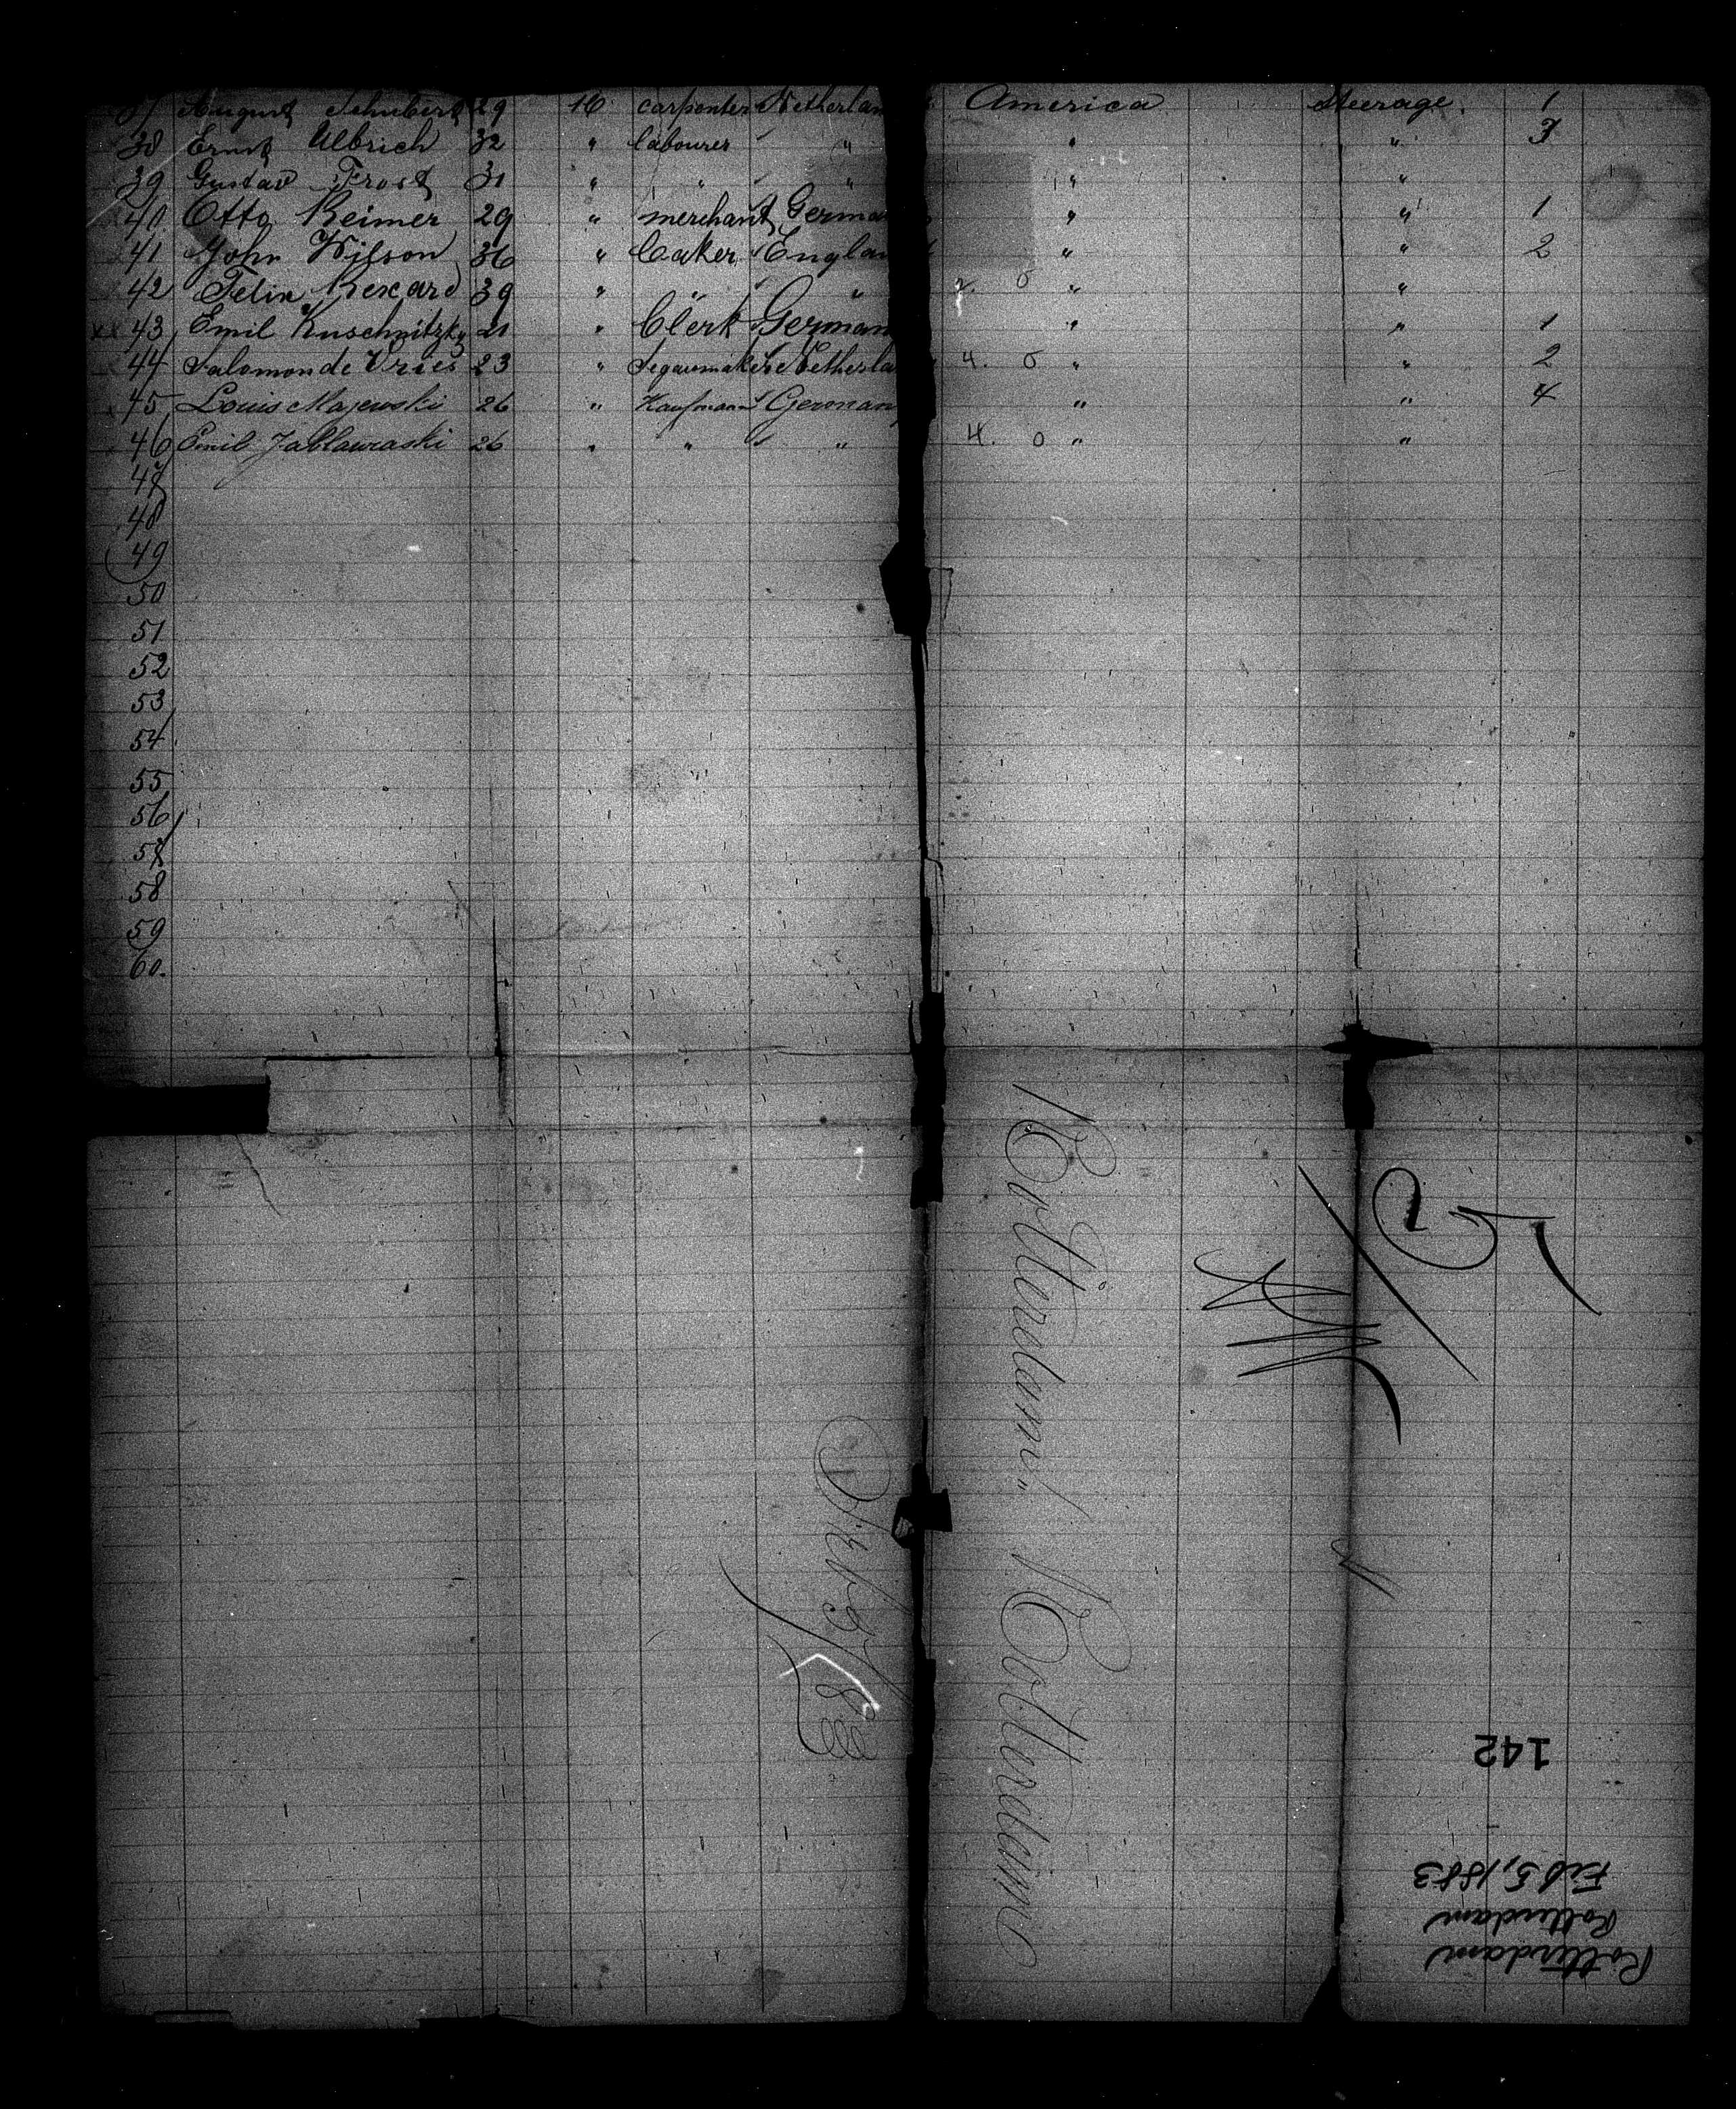 37 August Schubert 29 16 carpenter Netherlan America Steerage. 1
38 Ernst Ulbrich 32 " labourer " " " 3
39 Gustav Frost 31 " " " " "
40 Otto Reimer 29 " merchant Germa " " 1
41 John Wilson 36 " baker Englan " " 2
42 Felix 39 " " " 2. 0 " "
xx 43 Emil Kuschnitzky 21 " Clerk German " " 1
44 Salomon de Vries 23 " Segarmaker Netherla 4. 0 " " 2
45 Louis Majewski 26 " Kaufmann German " " 4
46 Emil 26 " " " 4. 0 " "
47
48
49
50
51
52
53
54
55
56
57
58
59
60.
"Rotterdam" Rotterdam
Feb 5/83
142
Feb 5, 1883
Rotterdam
Rotterdam